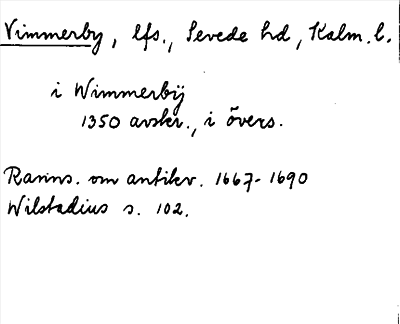 Vimmerby, lfs., Sevede hd, Kalm. l.
i Wimmerbÿ
1350 avskr., i övers.
Ranns. om antikv. 1667-1690
Wilstadius s. 102.